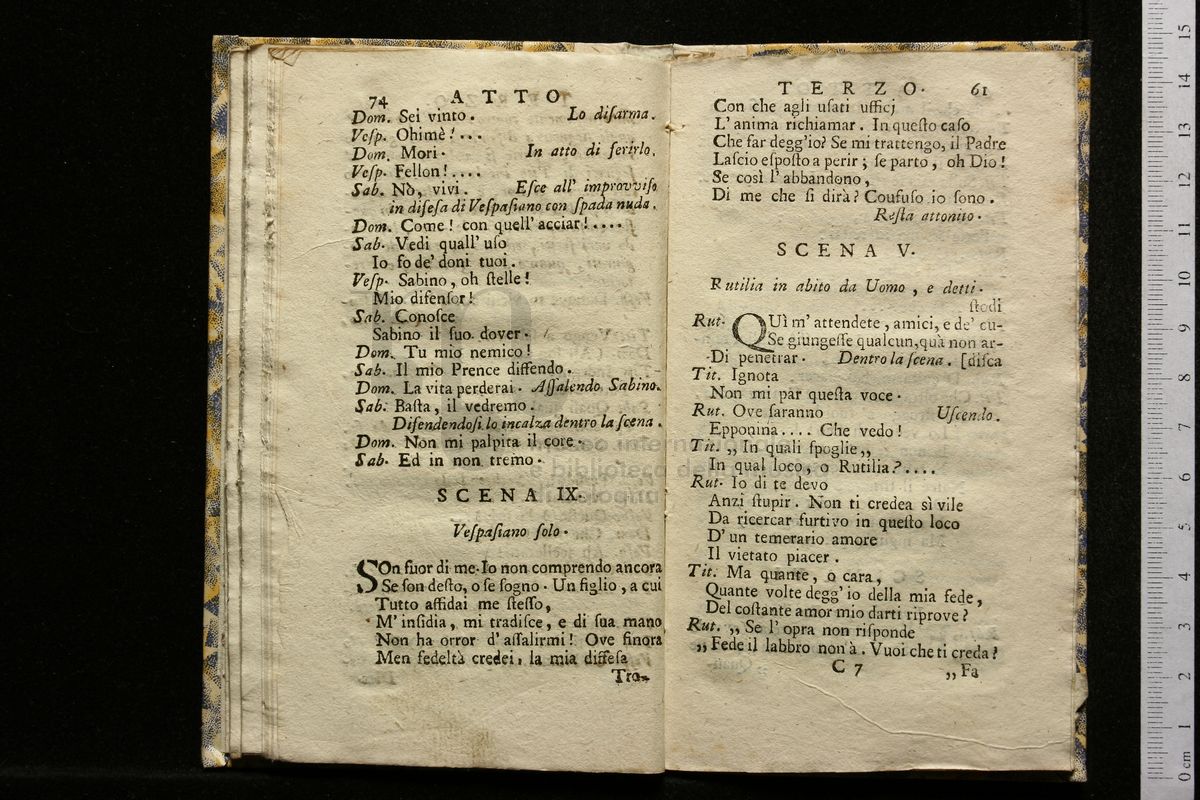 74 ATTO
Dom. Sei vinto. Lo diſarma.
Veſp. Ohimè!...
Dom. Mori. In atto di ferirlo.
Veſp. Fellon!....
Sab. Nò, vivi. Eſce all' improvviſo
in difeſa di Veſpaſiano con ſpada nuda.
Dom. Come! con quell' acciar!....
Sab. Vedi quall' uſo
Io fo de' doni tuoi.
Veſp. Sabino, oh ſtelle!
Mio difenſor!
Sab. Conoſce
Sabino il ſuo dover.
Dom. Tu mio nemico!
Sab. Il mio Prence diffendo.
Dom. La vita perderai. Aſſalendo Sabino.
Sab. Baſta, il vedremo.
Difendendoſi lo incalza dentro la ſcena.
Dom. Non mi palpita il core.
Sab. Ed in non tremo.
SCENA IX.
Veſpaſiano ſolo.
SOn fuor di me. Io non comprendo ancora
Se ſon deſto, o ſe ſogno. Un figlio, a cui
Tutto affidai me ſteſſo,
M' inſidia, mi tradiſce, e di ſua mano
Non ha orror d' aſſalirmi! Ove finora
Men fedeltà credei, la mia diffeſa
Tro-
TERZO. 61
Con che agli uſati ufficj
L' anima richiamar. In queſto caſo
Che far degg'io? Se mi trattengo, il Padre
Laſcio eſpoſto a perir; ſe parto, oh Dio!
Se così l' abbandono,
Di me che ſi dirà? Coufuſo io ſono.
Reſta attonito.
SCENA V.
Rutilia in abito da Uomo, e detti.
ſtodi
Rut. QUì m' attendete, amici, e de' cu-
Se giungeſſe qualcun, quà non ar-
Di penetrar. Dentro la ſcena. [diſca
Tit. Ignota
Non mi par queſta voce.
Rut. Ove ſaranno Uſcendo.
Epponina.... Che vedo!
Tit. „ In quali ſpoglie„
In qual loco, o Rutilia?....
Rut. Io di te devo
Anzi ſtupir. Non ti credea sì vile
Da ricercar furtivo in queſto loco
D' un temerario amore
Il vietato piacer.
Tit. Ma quante, o cara,
Quante volte degg' io della mia fede,
Del coſtante amor mio darti riprove?
Rut. „ Se l' opra non riſponde
„ Fede il labbro non à. Vuoi che ti creda?
C 7 „ Fa
0 cm 1 2 3 4 5 6 7 8 9 10 11 12 13 14 15